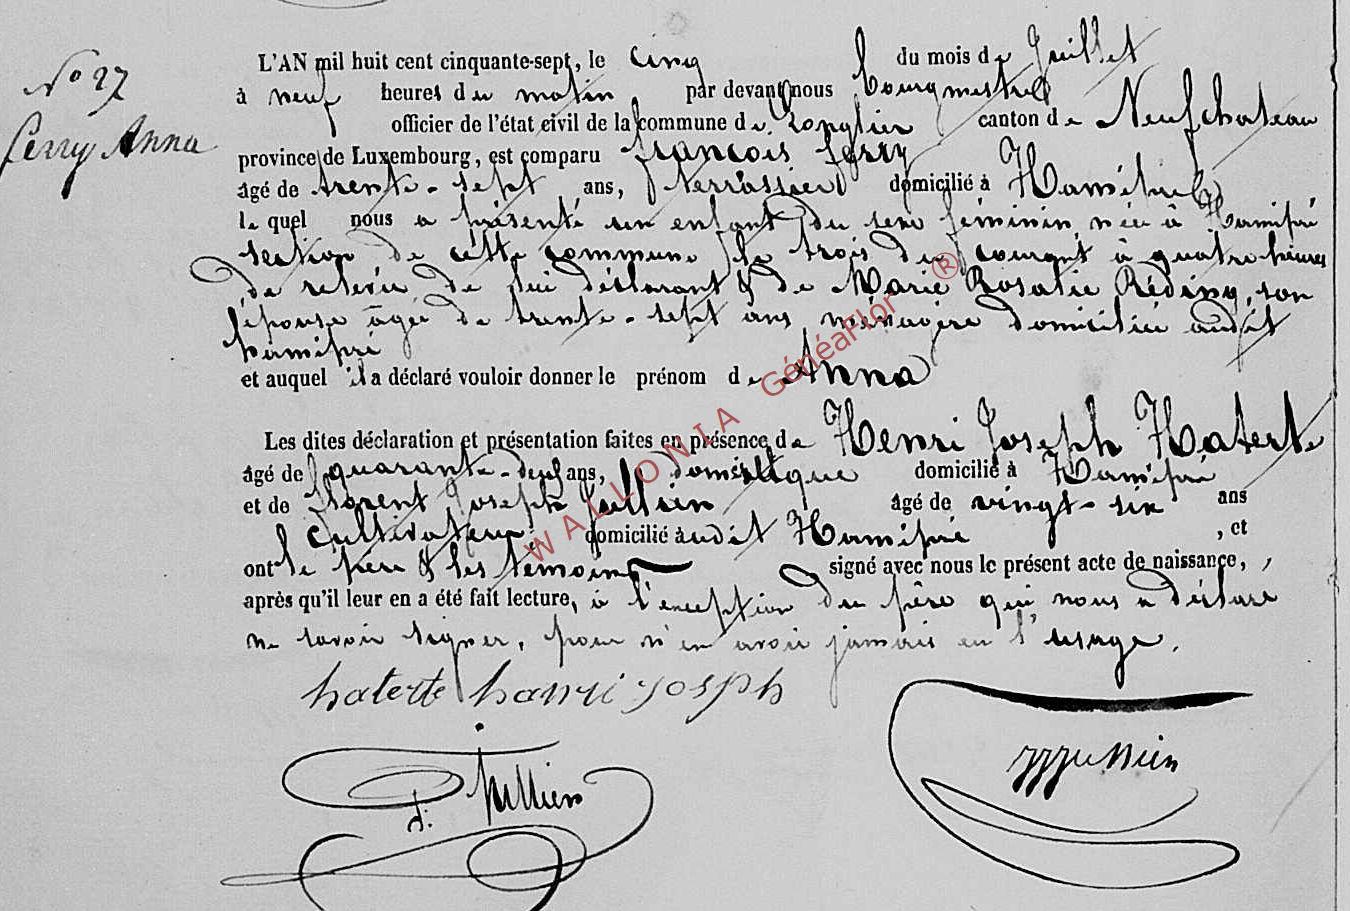 N° 27
Ferry Anna
L'AN mil huit cent cinquante-sept, le cinq du mois de Juillet
à neuf heures du matin par devant nous bourgmestre
officier de l'état civil de la commune de Longlier canton de Neufchateau
province de Luxembourg, est comparu françois ferry
âgé de trente-sept ans, terrassier domicilié à Hamipré
lequel nous a présenté un enfant du sexe féminin, née à Hamipré
section de cette commune le trois du courant à quatre heures
de relevée de lui déclarant & de Marie Rosalie Réding, son
épouse âgée de trente-sept ans ménagère domiciliée audit
hamipré
et auquel il a déclaré vouloir donner le prénom de Anna
Les dites déclaration et présentation faites en présence de Henri Joseph Haterte
âgé de quarante-deux ans, domestique domicilié à Hamipré
et de florent Joseph Jullien âgé de vingt-six ans
cultivateur domicilié audit Hamipré , et
ont le père & les témoins signé avec nous le présent acte de naissance,
après qu'il leur en a été fait lecture, à l'exception du père qui nous a déclaré
ne savoir signer, pour n'en avoir jamais eu l'usage.
haterte hanri josph
Jullien
WALLONIA GénéaFlor ®